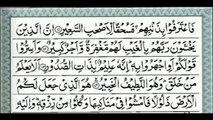 فَاعْتَرَفُوا بِذَنْبِهِمْ فَسُحْقًا لِأَصْحَابِ السَّعِيرِ إِنَّ الَّذِينَ
يَخْشَوْنَ رَبَّهُمْ بِالْغَيْبِ لَهُمْ مَغْفِرَةٌ وَأَجْرٌ كَبِيرٌ وَأَسِرُّوا
قَوْلَكُمْ أَوِ اجْهَرُوا بِهِ إِنَّهُ عَلِيمٌ بِذَاتِ الصُّدُورِ أَلَا يَعْلَمُ
مَنْ خَلَقَ وَهُوَ اللَّطِيفُ الْخَبِيرُ هُوَ الَّذِي جَعَلَ لَكُمُ
الْأَرْضَ ذَلُولًا فَامْشُوا فِي مَنَاكِبِهَا وَكُلُوا مِنْ رِزْقِهِ وَإِلَيْهِ